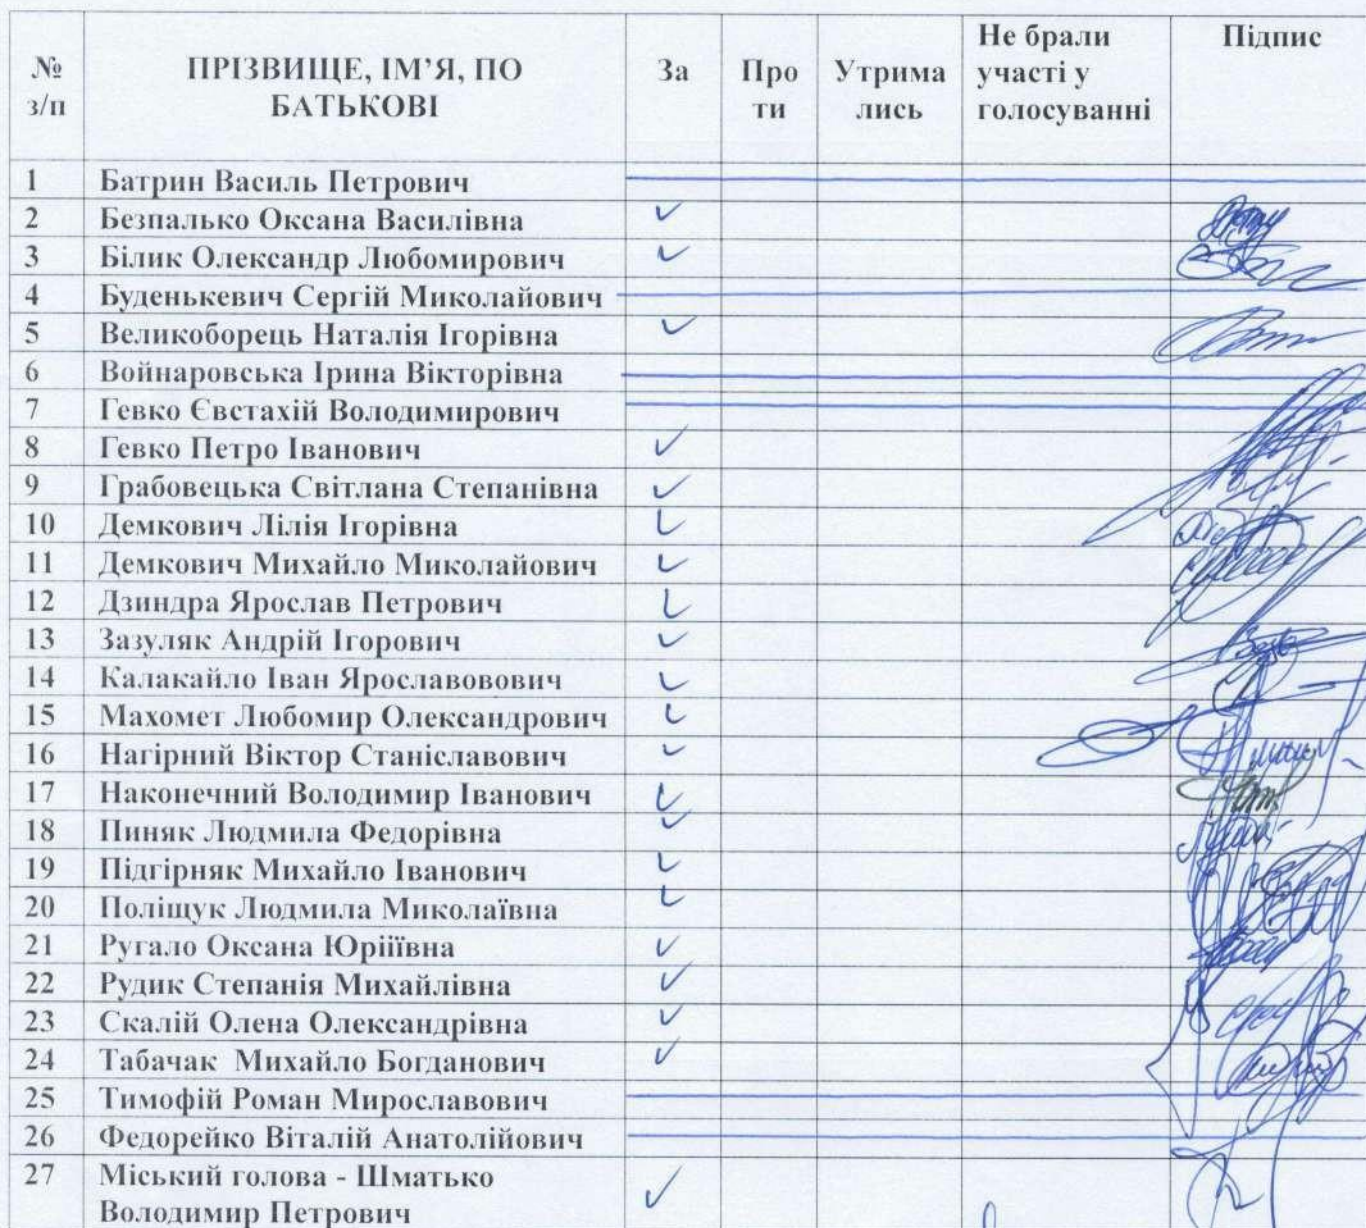 № з/п ПРІЗВИЩЕ, ІМ’Я, ПО БАТЬКОВІ За Про ти Утрима лись Не брали участі у голосуванні Підпис
1 Батрин Василь Петрович
2 Безпалько Оксана Василівна ✓
3 Білик Олександр Любомирович ✓
4 Буденькевич Сергій Миколайович
5 Великоборець Наталія Ігорівна ✓
6 Войнаровська Ірина Вікторівна
7 Гевко Євстахій Володимирович
8 Гевко Петро Іванович ✓
9 Грабовецька Світлана Степанівна ✓
10 Демкович Лілія Ігорівна ✓
11 Демкович Михайло Миколайович ✓
12 Дзиндра Ярослав Петрович ✓
13 Зазуляк Андрій Ігорович ✓
14 Калакайло Іван Ярославовович ✓
15 Махомет Любомир Олександрович ✓
16 Нагірний Віктор Станіславович ✓
17 Наконечний Володимир Іванович ✓
18 Пиняк Людмила Федорівна ✓
19 Підгірняк Михайло Іванович ✓
20 Поліщук Людмила Миколаївна ✓
21 Ругало Оксана Юріїївна ✓
22 Рудик Степанія Михайлівна ✓
23 Скалій Олена Олександрівна ✓
24 Табачак Михайло Богданович ✓
25 Тимофій Роман Мирославович
26 Федорейко Віталій Анатолійович
27 Міський голова - Шматько
Володимир Петрович ✓